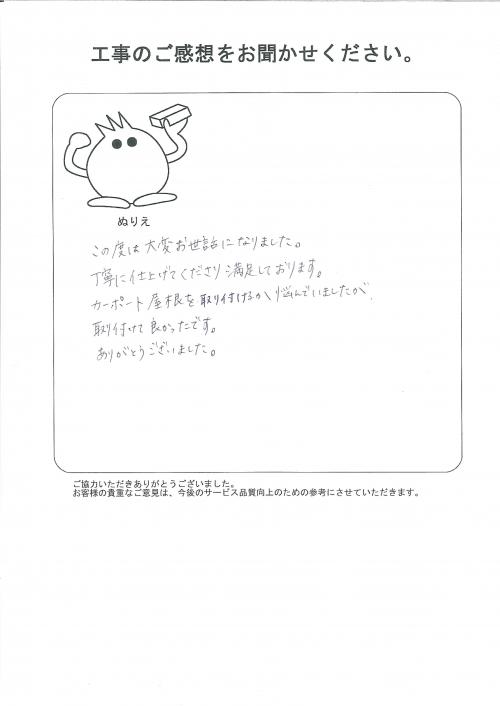 工事のご感想をお聞かせください。
ぬりえ
この度は大変お世話になりました。
丁寧に仕上げてくださり満足しております。
カーポート屋根を取り付けるか悩んでいましたが、
取り付けて良かったです。
ありがとうございました。
ご協力いただきありがとうございました。
お客様の貴重なご意見は、今後のサービス品質向上のための参考にさせていただきます。